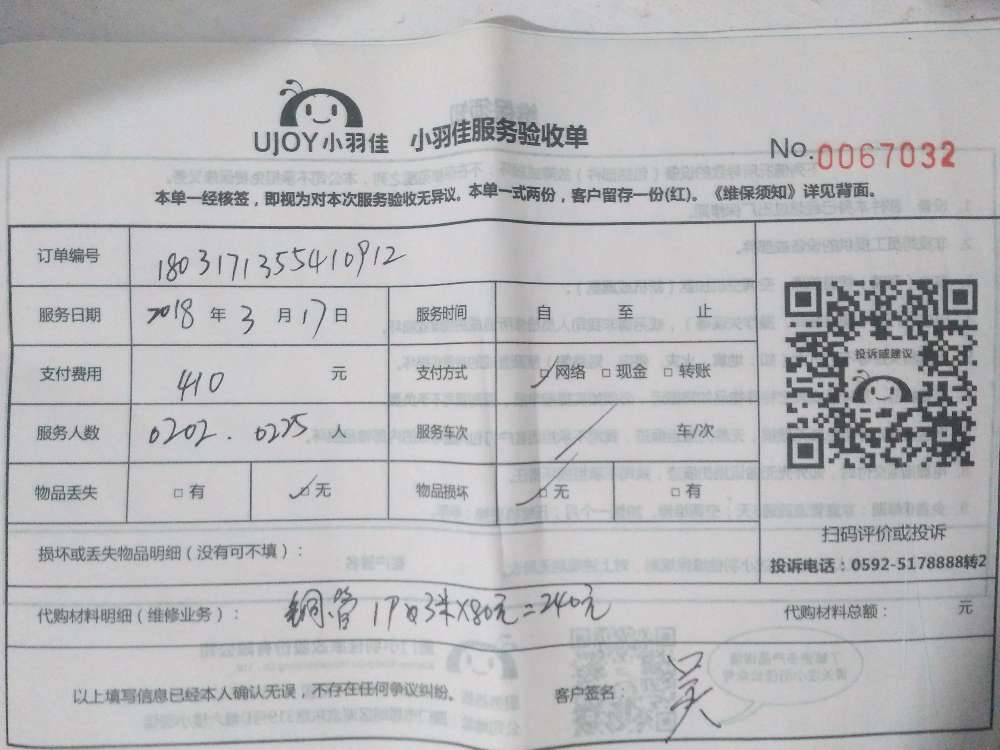 UJOY小羽佳 小羽佳服务验收单
No.0067032
本单一经核签，即视为对本次服务验收无异议。本单一式两份，客户留存一份(红)。《维保须知》详见背面。
订单编号 1803171355410912
服务日期 2018 年 3 月 17 日 服务时间 自 至 止
支付费用 410 元 支付方式 ☑网络 □现金 □转账
服务人数 0202. 0225 人 服务车次 车/次
物品丢失 □有 ☑无 物品损坏 ☑无 □有
投诉或建议
扫码评价或投诉
投诉电话：0592-5178888转2
损坏或丢失物品明细（没有可不填）：
代购材料明细（维修业务）： 铜管 3米X80元=240元 代购材料总额： 元
以上填写信息已经本人确认无误，不存在任何争议纠纷。 客户签名： 吴